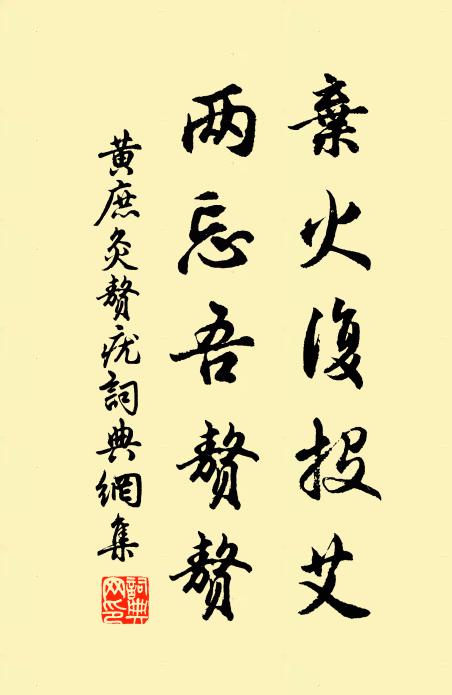 棄火復投艾
两忘吾贅贅
黄庶灸贅疣詞典網集
詞典网印